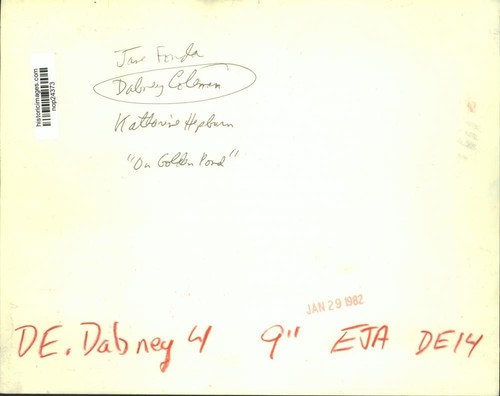 historicimages.com
nop24373
Jane Fonda
Dabney Coleman
Katharine Hepburn
"On Golden Pond"
JAN 29 1982
DE. Dabney 4 9" EJA DE14